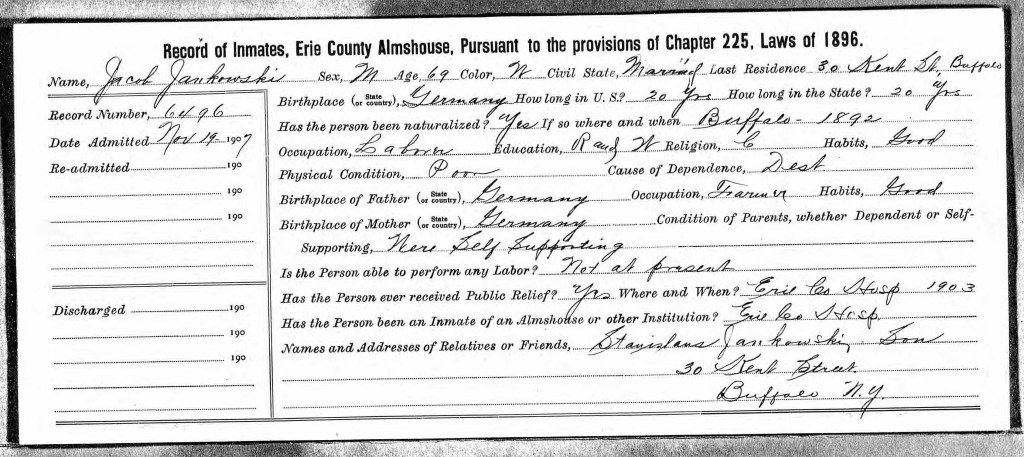 Record of Inmates, Erie County Almshouse, Pursuant to the provisions of Chapter 225, Laws of 1896.
Name, Jacob Jankowski Sex, M Age, 69 Color, W Civil State, Married Last Residence 30 Kent St, Buffalo
Record Number, 6496
Date Admitted Nov 19 1907
Re-admitted 190
190
190
Discharged 190
190
190
Birthplace (or State or country), Germany How long in U.S.? 20 Yrs How long in the State? 20 Yrs
Has the person been naturalized? Yes If so where and when Buffalo - 1892
Occupation, Laborer Education, R and W Religion, C Habits, Good
Physical Condition, Poor Cause of Dependence, Dest
Birthplace of Father (State or country), Germany Occupation, Farmer Habits, Good
Birthplace of Mother (State or country), Germany Condition of Parents, whether Dependent or Self-
Supporting, Were Self Supporting
Is the Person able to perform any Labor? Not at present
Has the Person ever received Public Relief? Yes Where and When? Erie Co Hosp 1903
Has the Person been an Inmate of an Almshouse or other Institution? Erie Co Hosp.
Names and Addresses of Relatives or Friends, Stanislaus Jankowski, Son
30 Kent Street.
Buffalo N.Y.